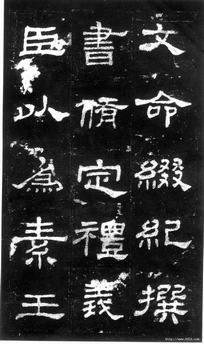 文命綴紀撰
書脩定禮義
臣以爲素王